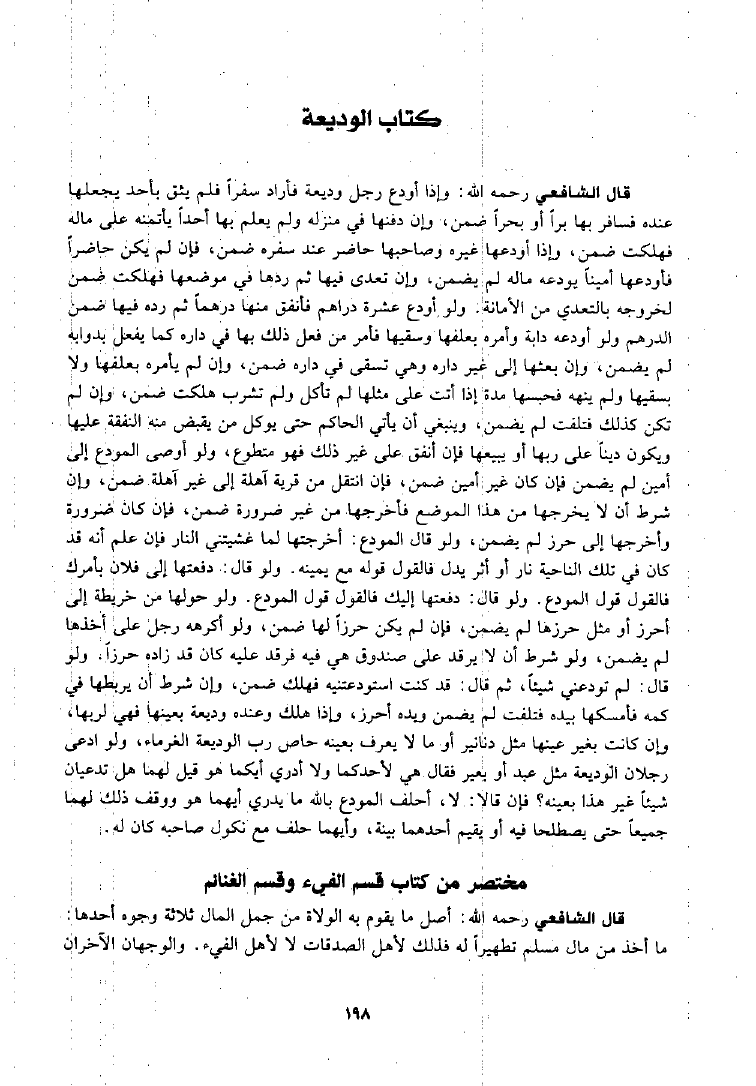 كتاب الوديعة
قال الشافعي رحمه الله: وإذا أودع رجل وديعة فأراد سفراً فلم يثق بأحد يجعلها
عنده فسافر بها براً أو بحراً ضمن، وإن دفنها في منزله ولم يعلم بها أحداً يأتمنه على ماله
فهلكت ضمن، وإذا أودعها غيره وصاحبها حاضر عند سفره ضمن، فإن لم يكن حاضراً
فأودعها أميناً يودعه ماله لم يضمن، وإن تعدى فيها ثم ردها في موضعها فهلكت ضمن
لخروجه بالتعدي من الأمانة. ولو أودع عشرة دراهم فأنفق منها درهماً ثم رده فيها ضمن
الدرهم ولو أودعه دابة وأمره بعلفها وسقيها فأمر من فعل ذلك بها في داره كما يفعل بدوابه
لم يضمن، وإن بعثها إلى غير داره وهي تسقى في داره ضمن، وإن لم يأمره بعلفها ولا
بسقيها ولم ينهه فحبسها مدة إذا أتت على مثلها لم تأكل ولم تشرب هلكت ضمن، وإن لم
تكن كذلك فتلفت لم يضمن، وينبغي أن يأتي الحاكم حتى يوكل من يقبض منه النفقة عليها
ويكون ديناً على ربها أو يبيعها فإن أنفق على غير ذلك فهو متطوع، ولو أوصى المودع إلى
أمين لم يضمن فإن كان غير أمين ضمن، فإن انتقل من قرية آهلة إلى غير آهلة ضمن، وإن
شرط أن لا يخرجها من هذا الموضع فأخرجها من غير ضرورة ضمن، فإن كان ضرورة
وأخرجها إلى حرز لم يضمن، ولو قال المودع: أخرجتها لما غشيتني النار فإن علم أنه قد
كان في تلك الناحية نار أو أثر يدل فالقول قوله مع يمينه. ولو قال: دفعتها إلى فلان بأمرك
فالقول قول المودع. ولو قال: دفعتها إليك فالقول قول المودع. ولو حولها من خريطة إلى
أحرز أو مثل حرزها لم يضمن، فإن لم يكن حرزاً لها ضمن، ولو أكرهه رجل على أخذها
لم يضمن، ولو شرط أن لا يرقد على صندوق هي فيه فرقد عليه كان قد زاده حرزاً. ولو
قال: لم تودعني شيئاً، ثم قال: قد كنت استودعتنيه فهلك ضمن، وإن شرط أن يربطها في
كمه فأمسكها بيده فتلفت لم يضمن ويده أحرز، وإذا هلك وعنده وديعة بعينها فهي لربها،
وإن كانت بغير عينها مثل دنانير أو ما لا يعرف بعينه حاص رب الوديعة الغرماء، ولو ادعى
رجلان الوديعة مثل عبد أو بعير فقال هي لأحدكما ولا أدري أيكما هو قيل لهما هل تدعيان
شيئاً غير هذا بعينه؟ فإن قالا: لا، أحلف المودع بالله ما يدري أيهما هو ووقف ذلك لهما
جميعاً حتى يصطلحا فيه أو يقيم أحدهما بينة، وأيهما حلف مع نكول صاحبه كان له.
مختصر من كتاب قسم الفيء وقسم الغنائم
قال الشافعي رحمه الله: أصل ما يقوم به الولاة من جمل المال ثلاثة وجوه أحدها:
ما أخذ من مال مسلم تطهيراً له فذلك لأهل الصدقات لا لأهل الفيء. والوجهان الآخران
١٩٨